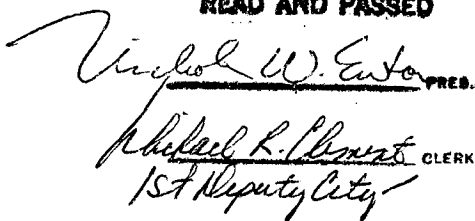 READ AND PASSED
W. PRES.
Michael R. Clement CLERK
1st Deputy City